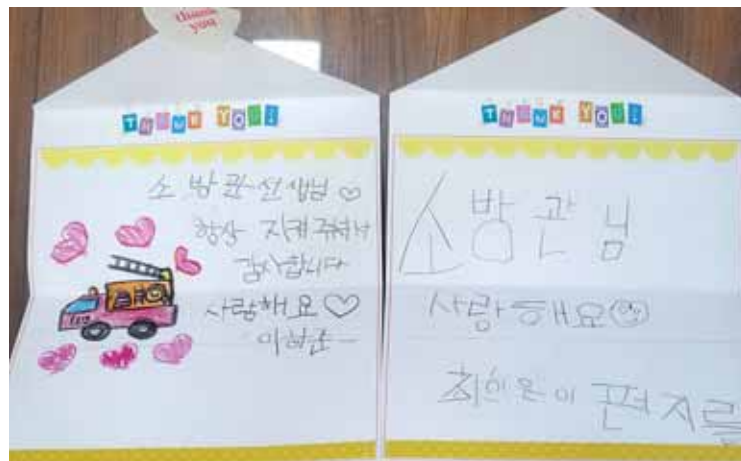 thank
you
THANK YOU!
소방관선생님♡
항상 지켜주셔서
감사합니다
사랑해요♡
THANK YOU!
소방관님
사랑해요
편지를